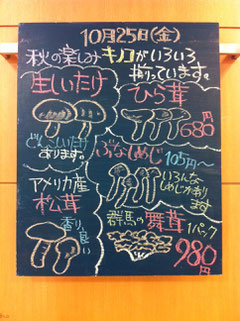 10月25日(金)
秋の楽しみ キノコがいろいろ
揃っています。
生しいたけ
どんこしいたけ
あります。
ひら茸
680円
ぶなしめじ 105円～
いろんな
しめじがあり
ます
アメリカ産
松茸
香り良い
群馬の舞茸
1パック
980円